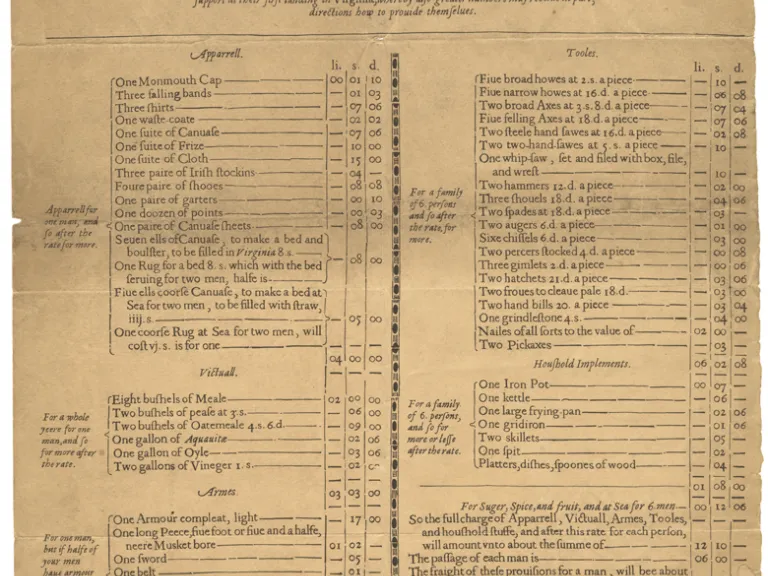 directions how to prouide themſelues.
Apparrell.
li. s. d.
One Monmouth Cap 00 01 10
Three falling bands — 01 03
Three ſhirts — 07 06
One waſte-coate — 02 02
One ſuite of Canuaſe — 07 06
One ſuite of Frize — 10 00
One ſuite of Cloth — 15 00
Three paire of Iriſh ſtockins — 04 —
Foure paire of ſhooes — 08 08
One paire of garters — 00 10
One doozen of points — 00 03
One paire of Canuaſe ſheets — 08 00
Apparrell for
one man, and
ſo after the
rate for more.
Seuen ells of Canuaſe, to make a bed and
boulſter, to be filled in Virginia 8 s.
One Rug for a bed 8. s. which with the bed — 08 00
ſeruing for two men, halfe is
Fiue ells coorſe Canuaſe, to make a bed at
Sea for two men, to be filled with ſtraw,
iiij. s. — 05 00
One coorſe Rug at Sea for two men, will
coſt vj. s. is for one
04 00 00
Victuall.
Eight buſhels of Meale 02 00 00
Two buſhels of peaſe at 3. s. — 06 00
Two buſhels of Oatemeale 4. s. 6. d. — 09 00
One gallon of Aquauitæ — 02 06
One gallon of Oyle — 03 06
Two gallons of Vineger 1. s. — 02
For a whole
yeere for one
man, and ſo
for more after
the rate.
03 03 00
Armes.
One Armour compleat, light — 17 00
One long Peece, fiue foot or fiue and a halfe,
neere Musket bore 01 02 —
One ſword — 05 —
One belt — 01 —
For one man,
but if halfe of
your men
haue armour
Tooles.
li. s. d.
Fiue broad howes at 2. s. a piece — 10 —
Fiue narrow howes at 16. d. a piece — 06 08
Two broad Axes at 3. s. 8. d. a piece — 07 04
Fiue felling Axes at 18. d. a piece — 07 06
Two ſteele hand ſawes at 16. d. a piece — 02 08
Two two-hand-ſawes at 5. s. a piece — 10 —
One whip-ſaw, ſet and filed with box, file,
and wreſt — 10 —
Two hammers 12. d. a piece — 02 00
Three ſhouels 18. d. a piece — 04 06
Two ſpades at 18. d. a piece — 03 —
Two augers 6. d. a piece — 01 00
Sixe chiſſels 6. d. a piece — 03 00
Two percers ſtocked 4. d. a piece — 00 08
Three gimlets 2. d. a piece — 00 06
Two hatchets 21. d. a piece — 03 06
Two froues to cleaue pale 18. d. — 03 00
Two hand bills 20. a piece — 03 04
One grindleſtone 4. s. — 04 00
Nailes of all ſorts to the value of 02 00 —
Two Pickaxes — 03 —
For a family
of 6. perſons
and ſo after
the rate, for
more.
06 02 08
Houſhold Implements.
One Iron Pot 00 07 —
One kettle — 06 —
One large frying-pan — 02 06
One gridiron — 01 06
Two skillets — 05 —
One ſpit — 02 —
Platters, diſhes, ſpoones of wood — 04 —
For a family
of 6. perſons,
and ſo for
more or leſſe
after the rate.
01 08 00
For Suger, Spice, and fruit, and at Sea for 6. men 00 12 06
So the full charge of Apparrell, Victuall, Armes, Tooles,
and houſhold ſtuffe, and after this rate for each perſon,
will amount vnto about the ſumme of 12 10 —
The paſſage of each man is 06 00 —
The fraight of theſe prouiſions for a man, will bee about